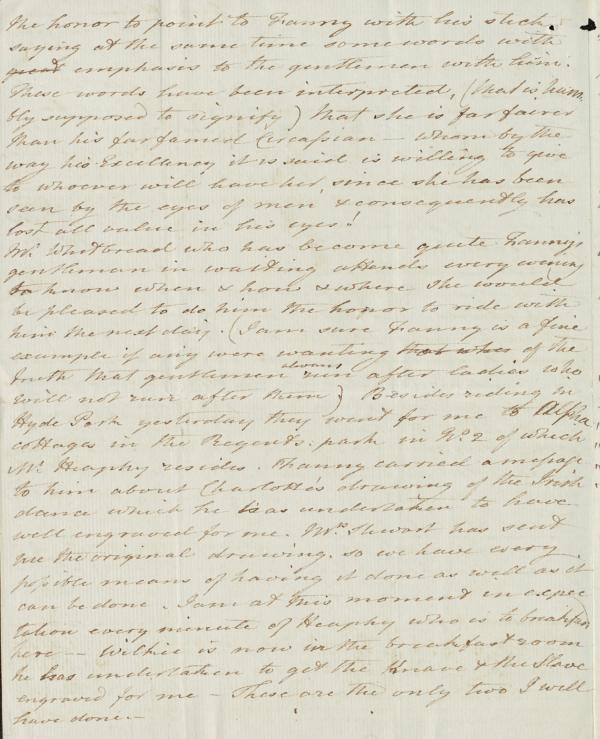 the honor to point to Fanny with his stick
saying at the same time some words with
great emphasis to the gentlemen with him.
These words have been interpreted, (that is hum
bly supposed to signify) that she is far fairer
than his far famed Circassian — whom by the
way his Excellency it is said is willing to give
to whoever will have her, since she has been
seen by the eyes of men & consequently has
lost all value in his eyes!
Mr. Whitbread who has become quite Fanny's
gentleman in waiting attends every evening
to know when & how & where she would
be pleased to do him the honor to ride with
him the next day. (I am sure Fanny is a fine
example if any were wanting that when of the
truth that gentlemen always run after ladies who
will not run after them) Besides riding in
Hyde Park yesterday they went for me to Alpha
cottages in the Regents park in No. 2 of which
Mr. Heaphy resides. Fanny carried a message
to him about Charlotte's drawing of the Irish
dance which he has undertaken to have
well engraved for me. Mrs. Stewart has sent
me the original drawing. so we have every
possible means of having it done as well as it
can be done. I am at this moment in expec
tation every minute of Heaphy who is to breakfast
here — Wilkie is now in the breakfast room
he has undertaken to get the Knave & the Slave
engraved for me — These are the only two I will
have done. —